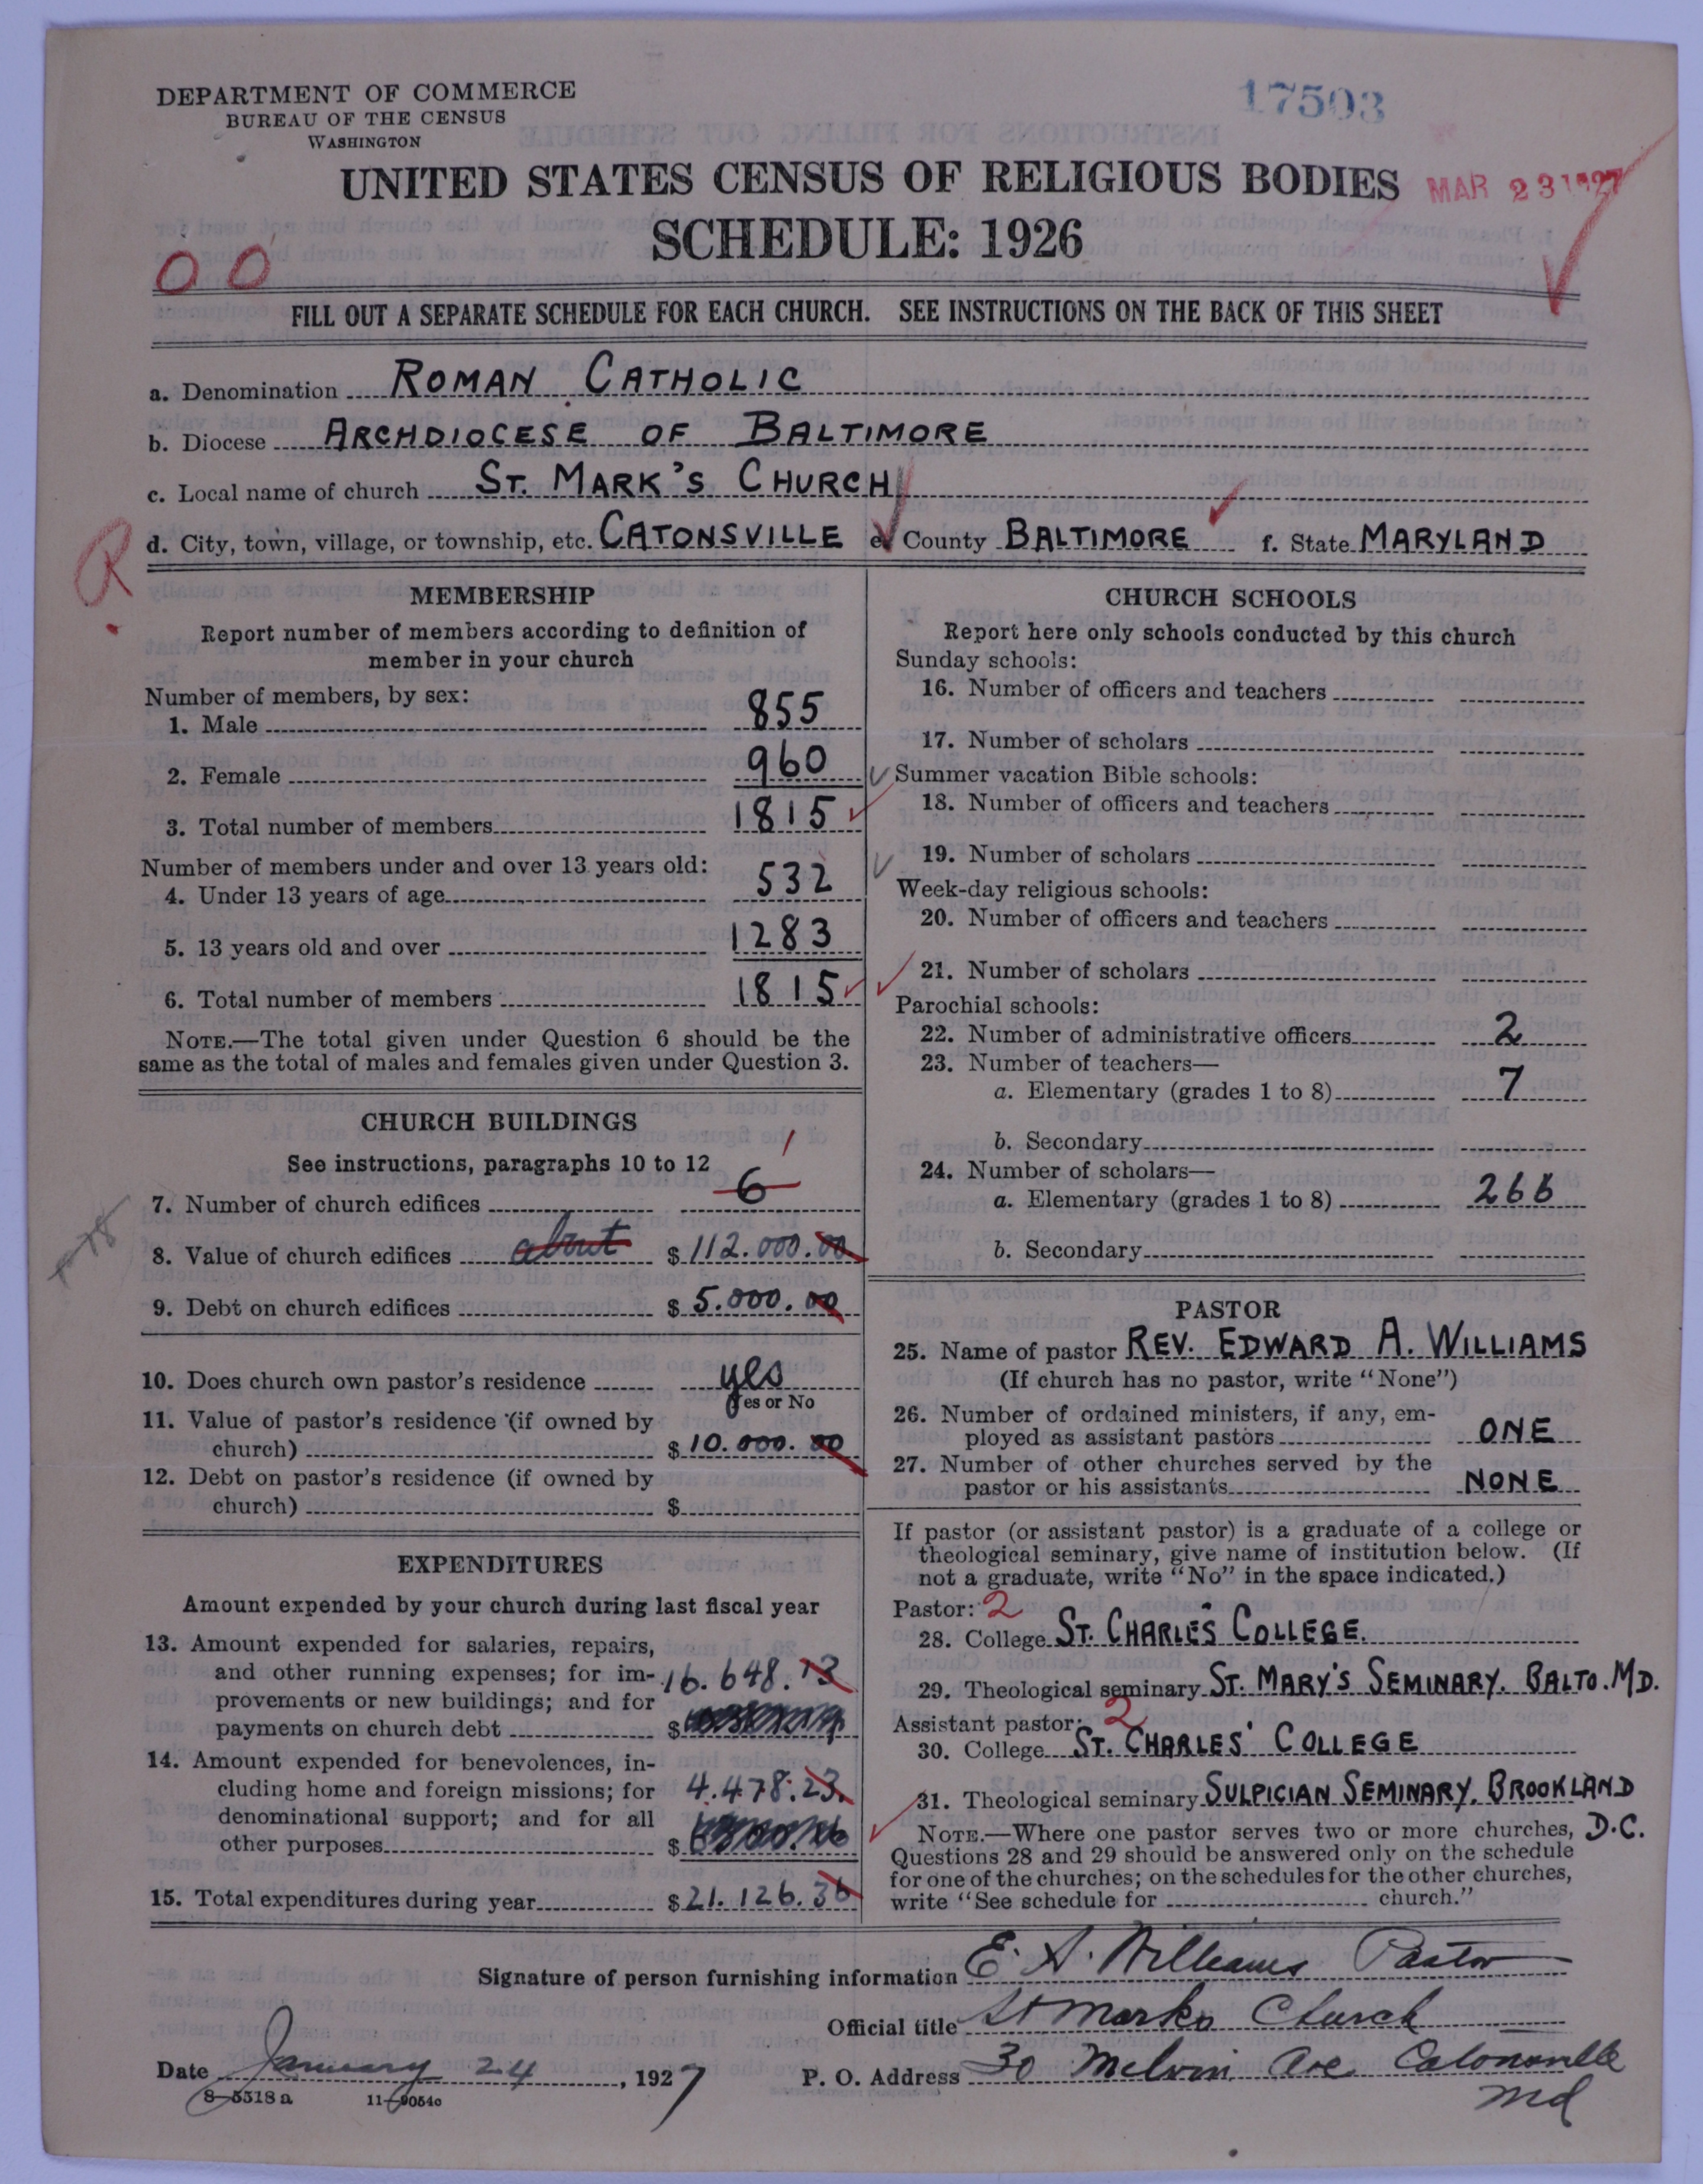 DEPARTMENT OF COMMERCE
BUREAU OF THE CENSUS
WASHINGTON
17503
UNITED STATES CENSUS OF RELIGIOUS BODIES
MAR 23 1927
SCHEDULE: 1926
00
FILL OUT A SEPARATE SCHEDULE FOR EACH CHURCH. SEE INSTRUCTIONS ON THE BACK OF THIS SHEET
a. Denomination ROMAN CATHOLIC
b. Diocese ARCHDIOCESE OF BALTIMORE
c. Local name of church ST. MARK'S CHURCH
d. City, town, village, or township, etc. CATONSVILLE e. County BALTIMORE f. State MARYLAND
R
MEMBERSHIP
Report number of members according to definition of
member in your church
Number of members, by sex:
1. Male 855
2. Female 960
3. Total number of members 1815
Number of members under and over 13 years old:
4. Under 13 years of age 532
5. 13 years old and over 1283
6. Total number of members 1815
NOTE.—The total given under Question 6 should be the
same as the total of males and females given under Question 3.
CHURCH BUILDINGS
See instructions, paragraphs 10 to 12
1
7. Number of church edifices 6
8. Value of church edifices about $ 112.000.00
9. Debt on church edifices $ 5.000.00
10. Does church own pastor's residence yes
Yes or No
11. Value of pastor's residence (if owned by
church) $ 10.000.00
12. Debt on pastor's residence (if owned by
church) $
EXPENDITURES
Amount expended by your church during last fiscal year
13. Amount expended for salaries, repairs,
and other running expenses; for im- 16.648.13
provements or new buildings; and for
payments on church debt $
14. Amount expended for benevolences, in-
cluding home and foreign missions; for 4.478.23
denominational support; and for all
other purposes $
15. Total expenditures during year $ 21.126.36
CHURCH SCHOOLS
Report here only schools conducted by this church
Sunday schools:
16. Number of officers and teachers
17. Number of scholars
Summer vacation Bible schools:
18. Number of officers and teachers
19. Number of scholars
Week-day religious schools:
20. Number of officers and teachers
21. Number of scholars
Parochial schools:
22. Number of administrative officers 2
23. Number of teachers—
a. Elementary (grades 1 to 8) 7
b. Secondary
24. Number of scholars—
a. Elementary (grades 1 to 8) 266
b. Secondary
PASTOR
25. Name of pastor REV. EDWARD A. WILLIAMS
(If church has no pastor, write "None")
26. Number of ordained ministers, if any, em-
ployed as assistant pastors ONE
27. Number of other churches served by the
pastor or his assistants NONE
If pastor (or assistant pastor) is a graduate of a college or
theological seminary, give name of institution below. (If
not a graduate, write "No" in the space indicated.)
Pastor: 2
28. College ST. CHARLES COLLEGE.
29. Theological seminary ST. MARY'S SEMINARY. BALTO. MD.
Assistant pastor: 2
30. College ST. CHARLES' COLLEGE
31. Theological seminary SULPICIAN SEMINARY. BROOKLAND
D.C.
NOTE.—Where one pastor serves two or more churches,
Questions 28 and 29 should be answered only on the schedule
for one of the churches; on the schedules for the other churches,
write "See schedule for church."
Signature of person furnishing information E. A. Williams Pastor
Official title St Marks Church
Date January 24, 1927 P. O. Address 30 Melvin Ave Catonsville
Md
8—5518 a 11—9054c